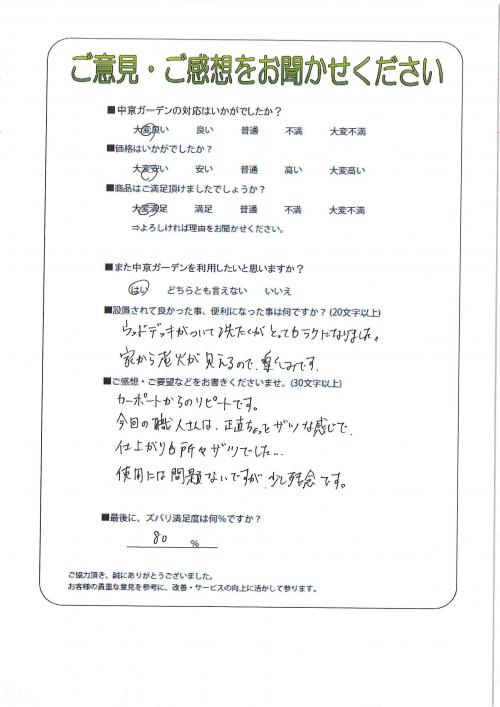 ご意見・ご感想をお聞かせください
■中京ガーデンの対応はいかがでしたか？
大変良い 良い 普通 不満 大変不満
■価格はいかがでしたか？
大変安い 安い 普通 高い 大変高い
■商品はご満足頂けましたでしょうか？
大変満足 満足 普通 不満 大変不満
⇒よろしければ理由をお聞かせください。
■また中京ガーデンを利用したいと思いますか？
はい どちらとも言えない いいえ
■設置されて良かった事、便利になった事は何ですか？(20文字以上)
ウッドデッキがついて洗たくがとってもラクになりました。
家から花火が見えるので、楽しみです。
■ご感想・ご要望などをお書きくださいませ。(30文字以上)
カーポートからのリピートです。
今回の職人さんは、正直ちょっとザツな感じで、
仕上がりも所々ザツでした…
使用には問題ないですが、少し残念です。
■最後に、ズバリ満足度は何％ですか？
80 %
ご協力頂き、誠にありがとうございました。
お客様の貴重な意見を参考に、改善・サービスの向上に活かして参ります。